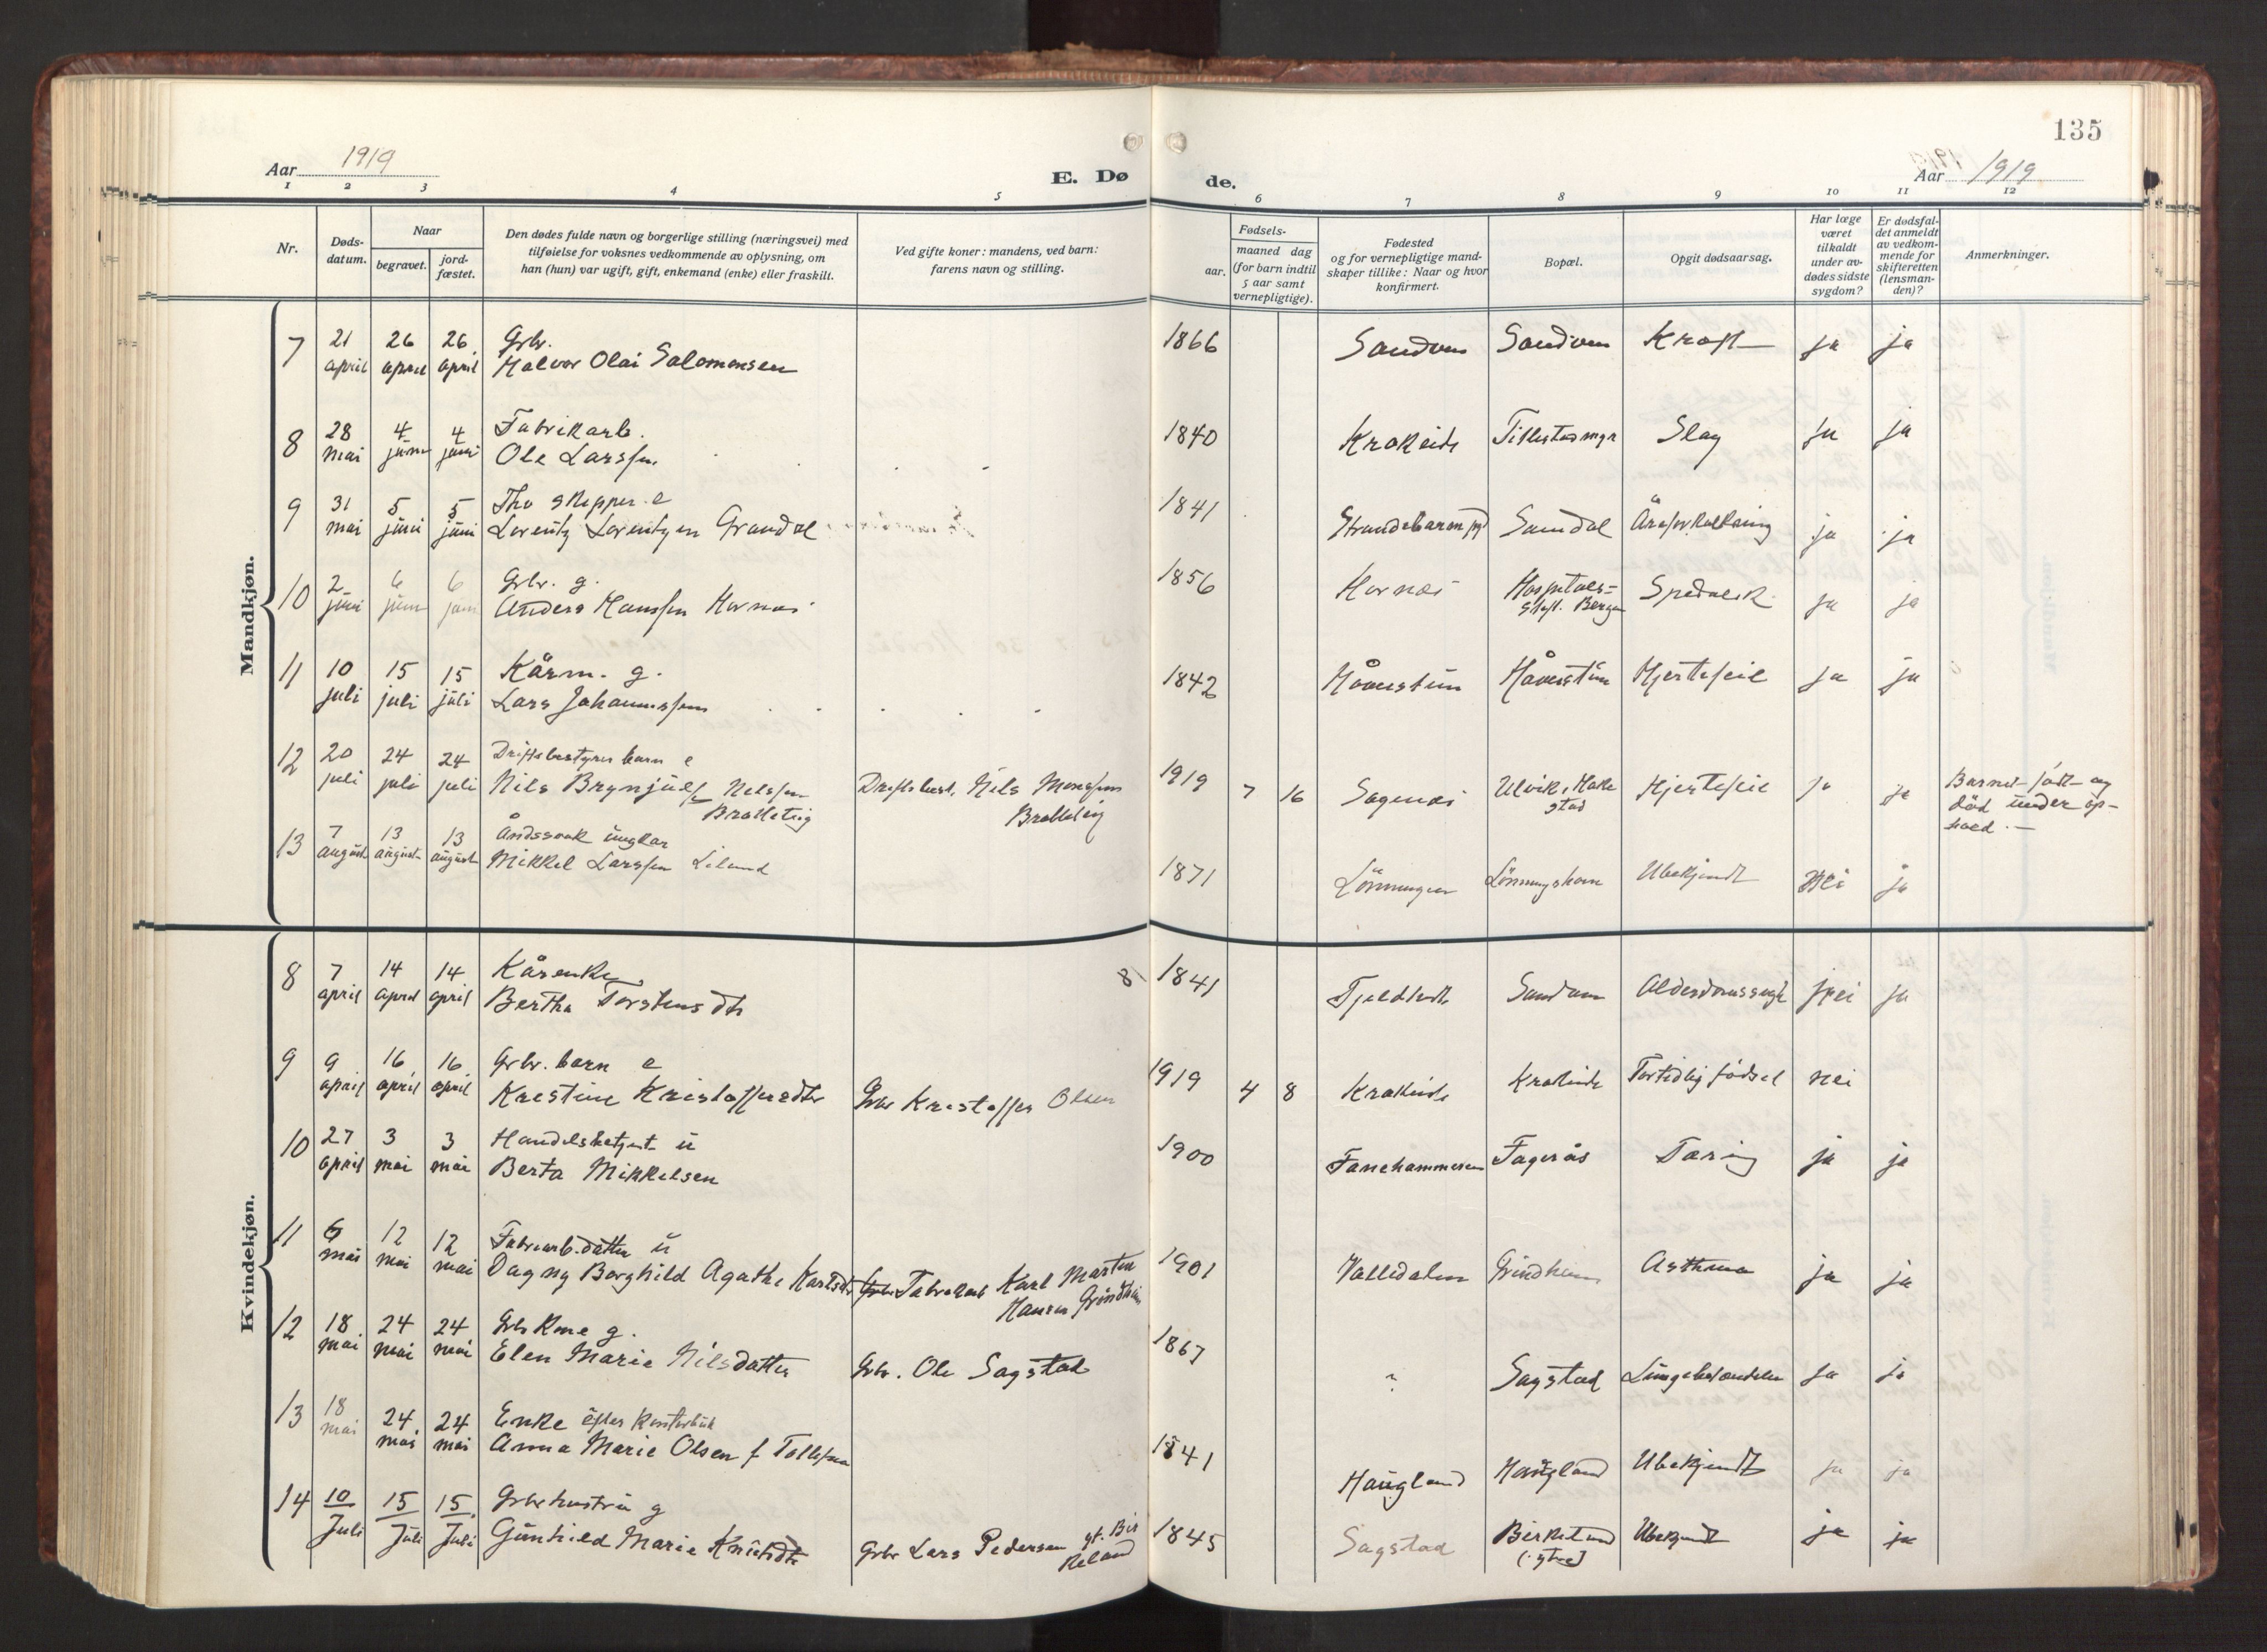 135
Aar 1919
E. Dø
de.
Aar 1919
1 2 3 4 5 6 7 8 9 10 11 12
Nr.
Døds-
datum.
Naar
begravet.
jord-
fæstet.
Den dødes fulde navn og borgerlige stilling (næringsvei) med
tilføielse for voksnes vedkommende av oplysning, om
han (hun) var ugift, gift, enkemand (enke) eller fraskilt.
Ved gifte koner: mandens, ved barn:
farens navn og stilling.
Fødsels-
aar.
maaned dag
(for barn indtil
5 aar samt
vernepligtige).
Fødested
og for vernepligtige mand-
skaper tillike: Naar og hvor
konfirmert.
Bopæl.
Opgit dødsaarsag.
Har læge
været
tilkaldt
under av-
dødes sidste
sygdom?
Er dødsfal-
det anmeldt
av vedkom-
mende for
skifteretten
(lensman-
den)?
Anmerkninger.
Mandkjøn.
7 21 26 26 Grbr. 1866 Sandven Sandven Kræft ja ja
april april april Halvor Olai Salomonsen
8 28 4 4 Fabrikarb. 1840 Krokeide Slag ja ja
mai juni juni Ole Larssen
9 31 5 5 skipper e 1841 Strandebarm Samdal Åreforkalkning ja ja
mai juni juni Lorentz Lorentzen Grandal
10 2 6 6 Grbr. g. 1856 Hornes Hospitals= Spedalsk ja ja
juni juni juni Anders Hanssen Hornes Bergen
11 10 15 15 Kårm. g. 1842 Håvestun Håvestun Hjertefeil ja ja
juli juli juli Lars Johannessen
12 20 24 24 Driftsbestyrer barn e 1919 7 16 Sagenes Ulvik, Hjertefeil ja ja Barnet født og
juli juli juli Nils Brynjulf Nilssen Driftsbest. Nils Monssen død under op-
Bratteteig Bratteteig hold.
13 7 13 13 Åndssvak ungkar 1871 Lønningen Lønningshavn Ubekjendt nei ja
august august august Mikkel Larssen Liland
Kvindekjøn.
8 7 14 14 Kårenke 81 1841 Tjeldstø Sandven ja
april april april Bertha Torstensdtr
9 9 16 16 Grbr. barn e 1919 4 8 Krokeide Krokeide Fortidlig fødsel nei
april april april Kristine Kristoffersdtr Grbr Kristoffer Olsen
10 27 3 3 Handelsbetjent u 1900 Fanehammeren Fagerås Tæring ja ja
april mai mai Berta Mikkelsen
11 6 12 12 Fabrikarb.datter u 1901 Valledalen Grindheim Asthma ja ja
mai mai mai Dagny Borghild Agathe Karlsdtr Grbr Fabrikarb Karl Martin
Hansen Grindheim
12 18 24 24 Grbr Kone g. 1867 ? Sagstad Lungebetændelse ja ja
mai mai mai Elen Marie Nilsdatter Grbr. Ole Sagstad
13 18 24 24 Enke efter 1841 Haugland Haugland Ubekjendt ja ja
mai mai mai Anna Marie Olsen f Tollefsen
14 10 15 15 Grbrhustru g 1845 Sagstad Birkeland Ubekjendt ja ja
Juli Juli Juli Gunhild Marie Knutsdtr Grbr Lars Pedersen yt. Bir (ytre)
keland